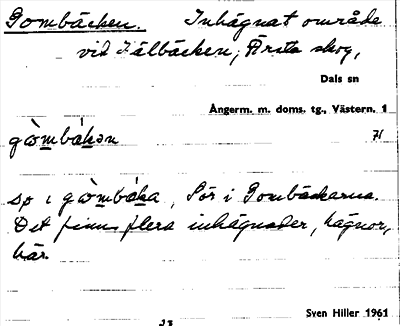 Gombäcken. Inhägnat område
vid Kälbäcken, Årsta skog,
Dals sn
Ångerm. m. doms. tg., Västern. 1
gòmbák̠ən 71
sp i gòmbák̠a, Sör i Gombäckarna.
Det finns flera inhägnader, hägnor,
här.
Sven Hiller 1961